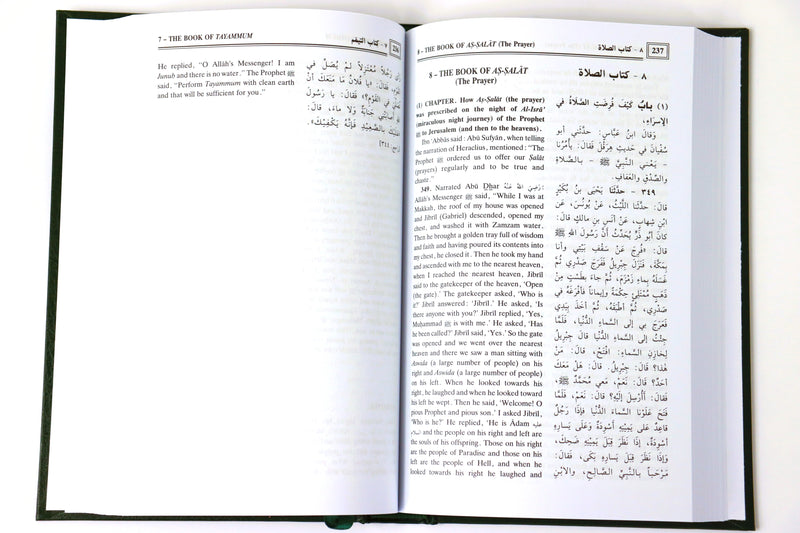 7 – THE BOOK OF TAYAMMUM
٧ - كتاب التيمم
236
He replied, “O Allâh's Messenger! I am
Junub and there is no water.” The Prophet ﷺ
said, “Perform Tayammum with clean earth
and that will be sufficient for you.”
رَأَى رَجُلًا مُعْتَزِلًا لَمْ يُصَلِّ فِي
القَوْمِ، فَقَالَ: «يَا فُلَانُ مَا مَنَعَكَ أَنْ
تُصَلِّيَ فِي القَوْمِ؟» فَقَالَ: يَا رَسُولَ
اللهِ أَصَابَتْنِي جَنَابَةٌ وَلَا مَاءَ، قَالَ:
«عَلَيْكَ بِالصَّعِيدِ فَإِنَّهُ يَكْفِيكَ».
8 – THE BOOK OF AṢ-ṢALÂT (The Prayer)
٨ - كتاب الصلاة
237
8 – THE BOOK OF AṢ-ṢALÂT
(The Prayer)
٨ - كتاب الصلاة
(1) CHAPTER. How Aṣ-Ṣalât (the prayer)
was prescribed on the night of Al-Isrâ'
(miraculous night journey) of the Prophet
ﷺ to Jerusalem (and then to the heavens).
Ibn 'Abbâs said: Abû Sufyân, when telling
the narration of Heraclius, mentioned: “The
Prophet ﷺ ordered us to offer our Ṣalât
(prayers) regularly and to be true and
chaste.”
349. Narrated Abû Dhar رَضِيَ اللهُ عَنْهُ:
Allâh's Messenger ﷺ said, “While I was at
Makkah, the roof of my house was opened
and Jibrîl (Gabriel) descended, opened my
chest, and washed it with Zamzam water.
Then he brought a golden tray full of wisdom
and faith and having poured its contents into
my chest, he closed it. Then he took my hand
and ascended with me to the nearest heaven,
when I reached the nearest heaven, Jibrîl
said to the gatekeeper of the heaven, ‘Open
(the gate).’ The gatekeeper asked, ‘Who is
it?’ Jibrîl answered: ‘Jibrîl.’ He asked, ‘Is
there anyone with you?’ Jibrîl replied, ‘Yes,
Muḥammad ﷺ is with me.’ He asked, ‘Has
he been called?’ Jibrîl said, ‘Yes.’ So the gate
was opened and we went over the nearest
heaven and there we saw a man sitting with
Aswida (a large number of people) on his
right and Aswida (a large number of people)
on his left. When he looked towards his
right, he laughed and when he looked toward
his left he wept. Then he said, ‘Welcome! O
pious Prophet and pious son.’ I asked Jibrîl,
‘Who is he?’ He replied, ‘He is Âdam عليه
السلام and the people on his right and left are
the souls of his offspring. Those on his right
are the people of Paradise and those on his
left are the people of Hell, and when he
looked towards his right he laughed and
(١) بابٌ كَيْفَ فُرِضَتِ الصَّلَاةُ فِي
الإِسْرَاءِ،
وَقَالَ ابْنُ عَبَّاسٍ: حَدَّثَنِي أَبُو
سُفْيَانَ فِي حَدِيثِ هِرَقْلَ فَقَالَ: يَأْمُرُنَا
- يَعْنِي النَّبِيَّ ﷺ - بِالصَّلَاةِ
وَالصِّدْقِ وَالعَفَافِ.
٣٤٩ - حَدَّثَنَا يَحْيَى بْنُ بُكَيْرٍ
قَالَ: حَدَّثَنَا اللَّيْثُ، عَنْ يُونُسَ، عَنِ
ابْنِ شِهَابٍ، عَنْ أَنَسِ بْنِ مَالِكٍ قَالَ:
كَانَ أَبُو ذَرٍّ يُحَدِّثُ أَنَّ رَسُولَ اللهِ ﷺ
قَالَ: «فُرِجَ عَنْ سَقْفِ بَيْتِي وَأَنَا
بِمَكَّةَ، فَنَزَلَ جِبْرِيلُ فَفَرَجَ صَدْرِي ثُمَّ
غَسَلَهُ بِمَاءِ زَمْزَمَ، ثُمَّ جَاءَ بِطَسْتٍ مِنْ
ذَهَبٍ مُمْتَلِئٍ حِكْمَةً وَإِيمَانًا فَأَفْرَغَهُ فِي
صَدْرِي، ثُمَّ أَطْبَقَهُ، ثُمَّ أَخَذَ بِيَدِي
فَعَرَجَ بِي إِلَى السَّمَاءِ الدُّنْيَا، فَلَمَّا
جِئْتُ إِلَى السَّمَاءِ الدُّنْيَا قَالَ جِبْرِيلُ
لِخَازِنِ السَّمَاءِ: افْتَحْ، قَالَ: مَنْ
هَذَا؟ قَالَ: جِبْرِيلُ، قَالَ: هَلْ مَعَكَ
أَحَدٌ؟ قَالَ: نَعَمْ، مَعِي مُحَمَّدٌ ﷺ،
فَقَالَ: أَأُرْسِلَ إِلَيْهِ؟ قَالَ: نَعَمْ، فَلَمَّا
فَتَحَ عَلَوْنَا السَّمَاءَ الدُّنْيَا فَإِذَا رَجُلٌ
قَاعِدٌ عَلَى يَمِينِهِ أَسْوِدَةٌ وَعَلَى يَسَارِهِ
أَسْوِدَةٌ، إِذَا نَظَرَ قِبَلَ يَمِينِهِ ضَحِكَ،
وَإِذَا نَظَرَ قِبَلَ يَسَارِهِ بَكَى، فَقَالَ:
مَرْحَبًا بِالنَّبِيِّ الصَّالِحِ، وَالِابْنِ